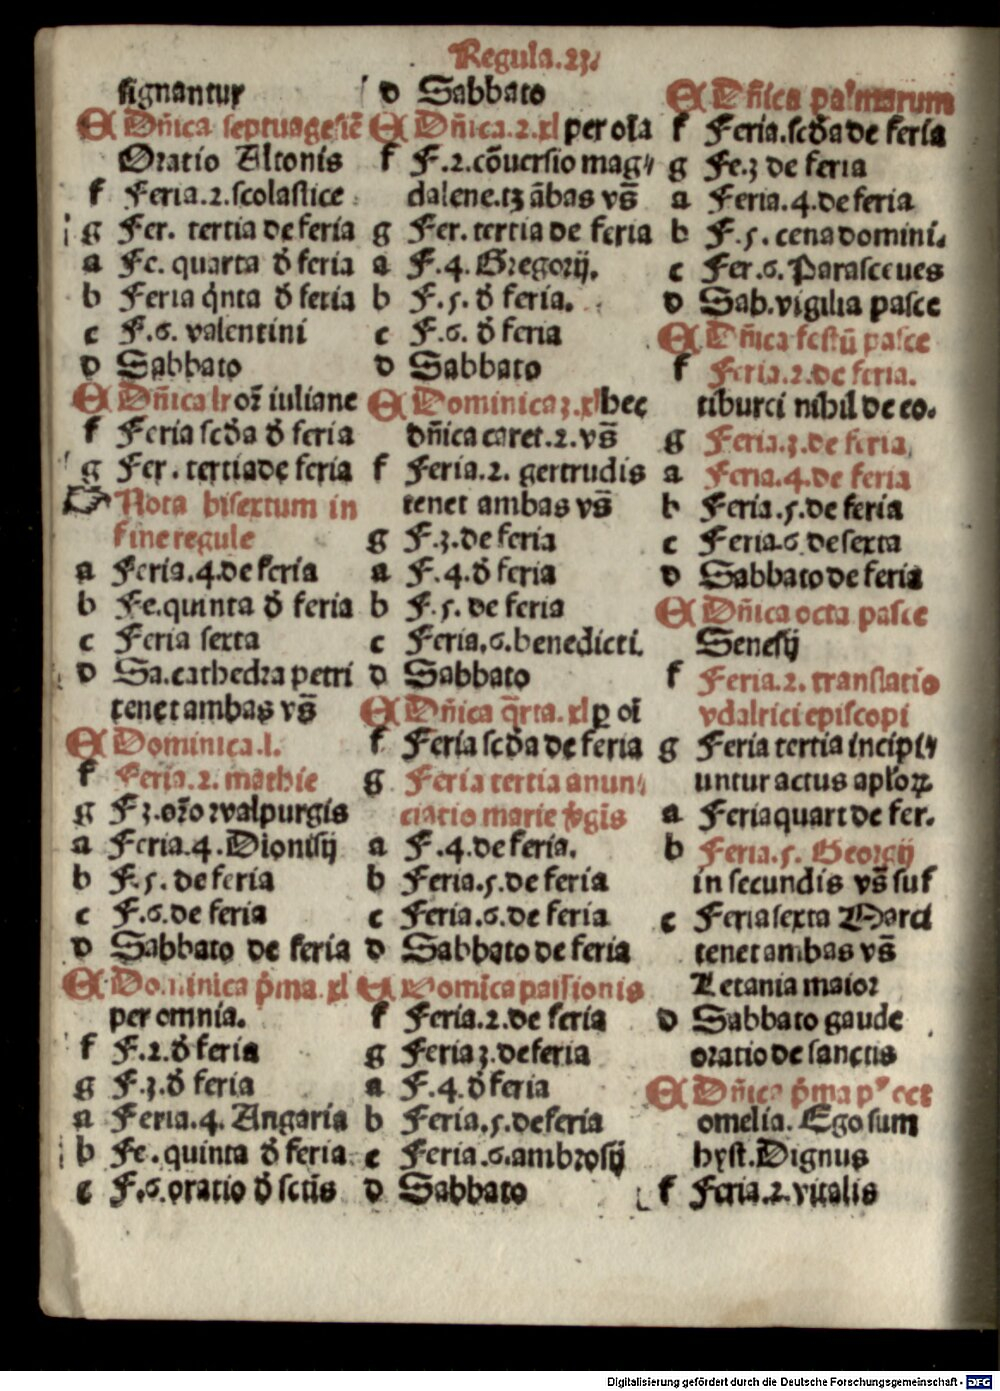 Regula.23.
signantur
E Dñica septuagesie̅
Oratio Altonis
f Feria.2.scolastice
g Fer. tertia de feria
a Fe. quarta ð feria
b Feria q̇nta ð feria
c F.6. valentini
d Sabbato
E Dñica lx or̃ iuliane
f Feria scð̃a ð feria
g Fer. tertia de feria
☞ Nota bisextum in
fine regule
a Feria.4.de feria
b Fe.quinta ð feria
c Feria sexta
d Sa.cathedra petri
tenet ambas vs̃
E Dominica.l.
f Feria.2. mathie
g F3.oro walpurgis
a Feria.4.Dionisij
b F.5. de feria
c F.6.de feria
d Sabbato de feria
E Dominica p̃ma xl
per omnia.
f F.2.ð feria
g F.3.ð feria
a Feria.4. Angaria
b Fe.quinta ð feria
c F.6.oratio ð sctis
d Sabbato
E Dñica.2.xl per oi̅a
f F.2.co̅uersio mag⸗
dalene.tʒ a̅bas vs̃
g Fer. tertia de feria
a F.4. Gregorij.
b F.5. ð feria.
c F.6. ð feria
d Sabbato
E Dominica 3.xl hec
dñica caret.2.vs̃
f Feria.2. gertrudis
tenet ambas vs̃
g F.3.de feria
a F.4.ð feria
b F.5. de feria
c Feria.6.benedicti.
d Sabbato
E Dñica q̃rta.xl ꝑ oi̅
f Feria scð̃a de feria
g Feria tertia anun⸗
ciatio marie v̓gis
a F.4.de feria.
b Feria.5.de feria
c Feria.6.de feria
d Sabbato de feria
E Domi̅ca passionis
f Feria.2.de feria
g Feria 3.de feria
a F.4.ð feria
b Feria.5.de feria
c Feria.6.ambrosij
d Sabbato
E Dñica palmarum
f Feria.scð̃a de feria
g Fe.3 de feria
a Feria.4.de feria
b F.5.cena domini.
c Fer.6.Parasceues
d Sab.vigilia pasce
E Dñica festu̅ pasce
f Feria.2.de feria.
tiburci nihil de eo.
g Feria.3.de feria,
a Feria.4.de feria
b Feria.5.de feria
c Feria.6 de sexta
d Sabbato de feria
E Dñica octa pasce
Senesij
f Feria.2. translatio
vdalrici episcopi
g Feria tertia incipi⸗
untur actus aplo̅ꝝ
a Feria quart de fer.
b Feria.5. Georgij
in secundis vs̃ suf
c Feria sexta Marci
tenet ambas vs̃
Letania maior
d Sabbato gaude
oratio de sanctis
E Dñica p̃ma pꝰ oct
omelia. Ego sum
hyst.Dignus
f Feria.2.vitalis
Digitalisierung gefördert durch die Deutsche Forschungsgemeinschaft - DFG